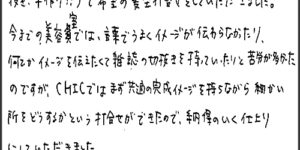 今までの美容室では、言葉でうまくイメージが伝わらなかったり、
何とかイメージを伝えたくて雑誌の切抜きを持っていったりと苦労が多かった
のですが、CHICではまず共通の完成イメージを持ちながら細かい
所をどうするかという打合せができたので、納得のいく仕上り
にしていただきました。